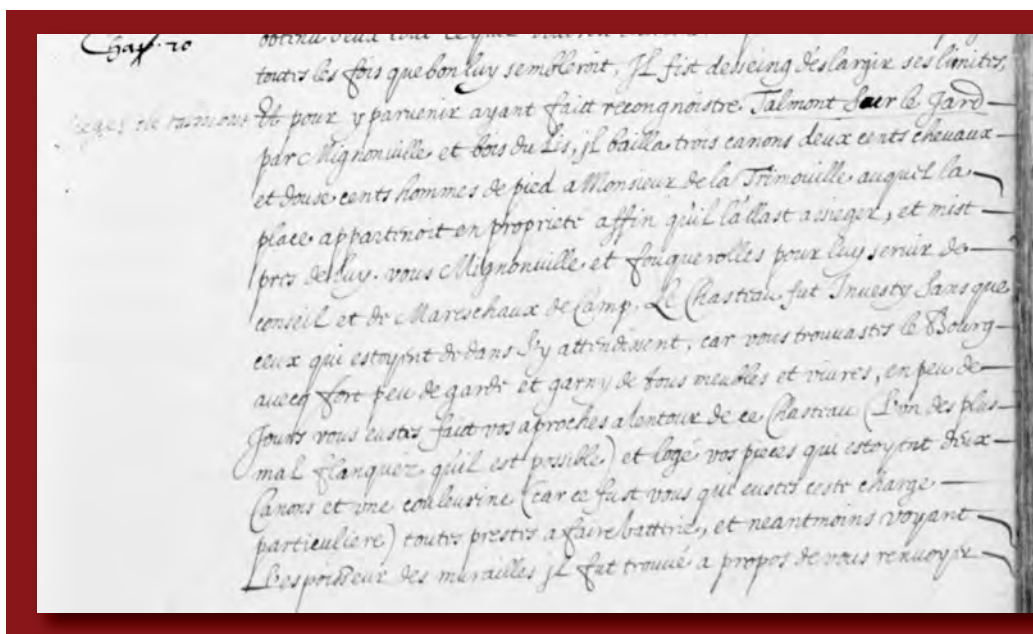 Chap. 20
obtenu d'eux tout ce
toutes les fois que bon luy sembleroit, Jl fist desseing deslargir ses limites,
sieges de talmont Et pour y parvenir ayant faict recongnoistre Talmont Suer le Jard
par Mignonville et bois du Lis, jl bailla trois canons deux cents chevaux
et douse cents hommes de pied a Monsieur de la Trimouille auquel la
place appartenoit en propriete affin qu'il l'allast assieger, et mist
pres de luy vous Mignonville et fouquerolles pour luy servir de
conseil et de Mareschaux de Camp. Le Chasteau fut Jnvesty Sans que
ceux qui estoyent dedans s'y attendissent, car vous trouvastes le Bourg
avecq fort peu de garde et garny de tous meubles et vivres, en peu de
Jours vous eustes faict vos aproches alentour de ce Chasteau (L'un des plus
mal flanquéz qu'il est possible) et logé vos pieces qui estoyent deux
Canons et une couleurine (car ce fust vous qui eustes ceste charge
particuliere) toutes prestes a faire batterie, et neantmoins voyant
L'espoisseur des murailles jl fut trouvé a propos de vous renvoyer